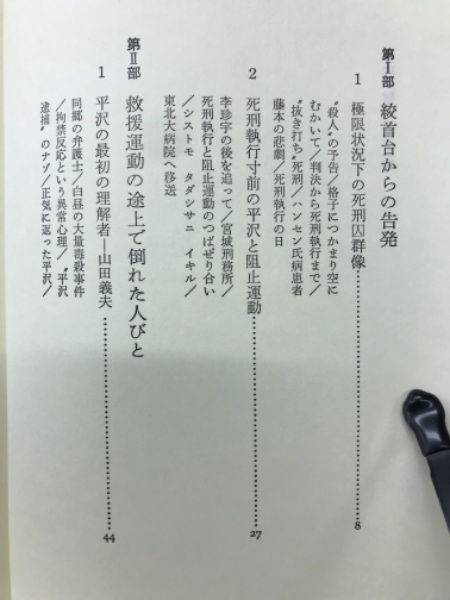 第Ⅰ部 絞首台からの告発
1 極限状況下の死刑囚群像……………………8
〝殺人〟の予告／格子につかまり空に
むかいて／判決から死刑執行まで／
〝抜き打ち〟死刑／ハンセン氏病患者
藤本の悲劇／死刑執行の日
2 死刑執行寸前の平沢と阻止運動……………………27
李珍宇の後を追って／宮城刑務所／
死刑執行と阻止運動のつばぜり合い
／シストモ タダシサニ イキル／
東北大病院へ移送
第Ⅱ部 救援運動の途上で倒れた人びと
1 平沢の最初の理解者―山田義夫……………………44
同郷の弁護士／白昼の大量毒殺事件
／拘禁反応という異常心理／〝平沢
逮捕〟のナゾ／正気に返った平沢／